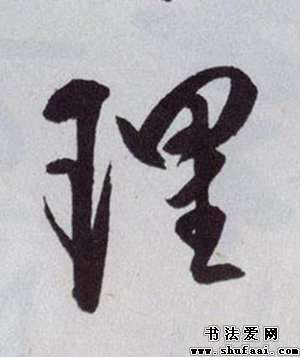 理
书法爱网
www.shufaai.com